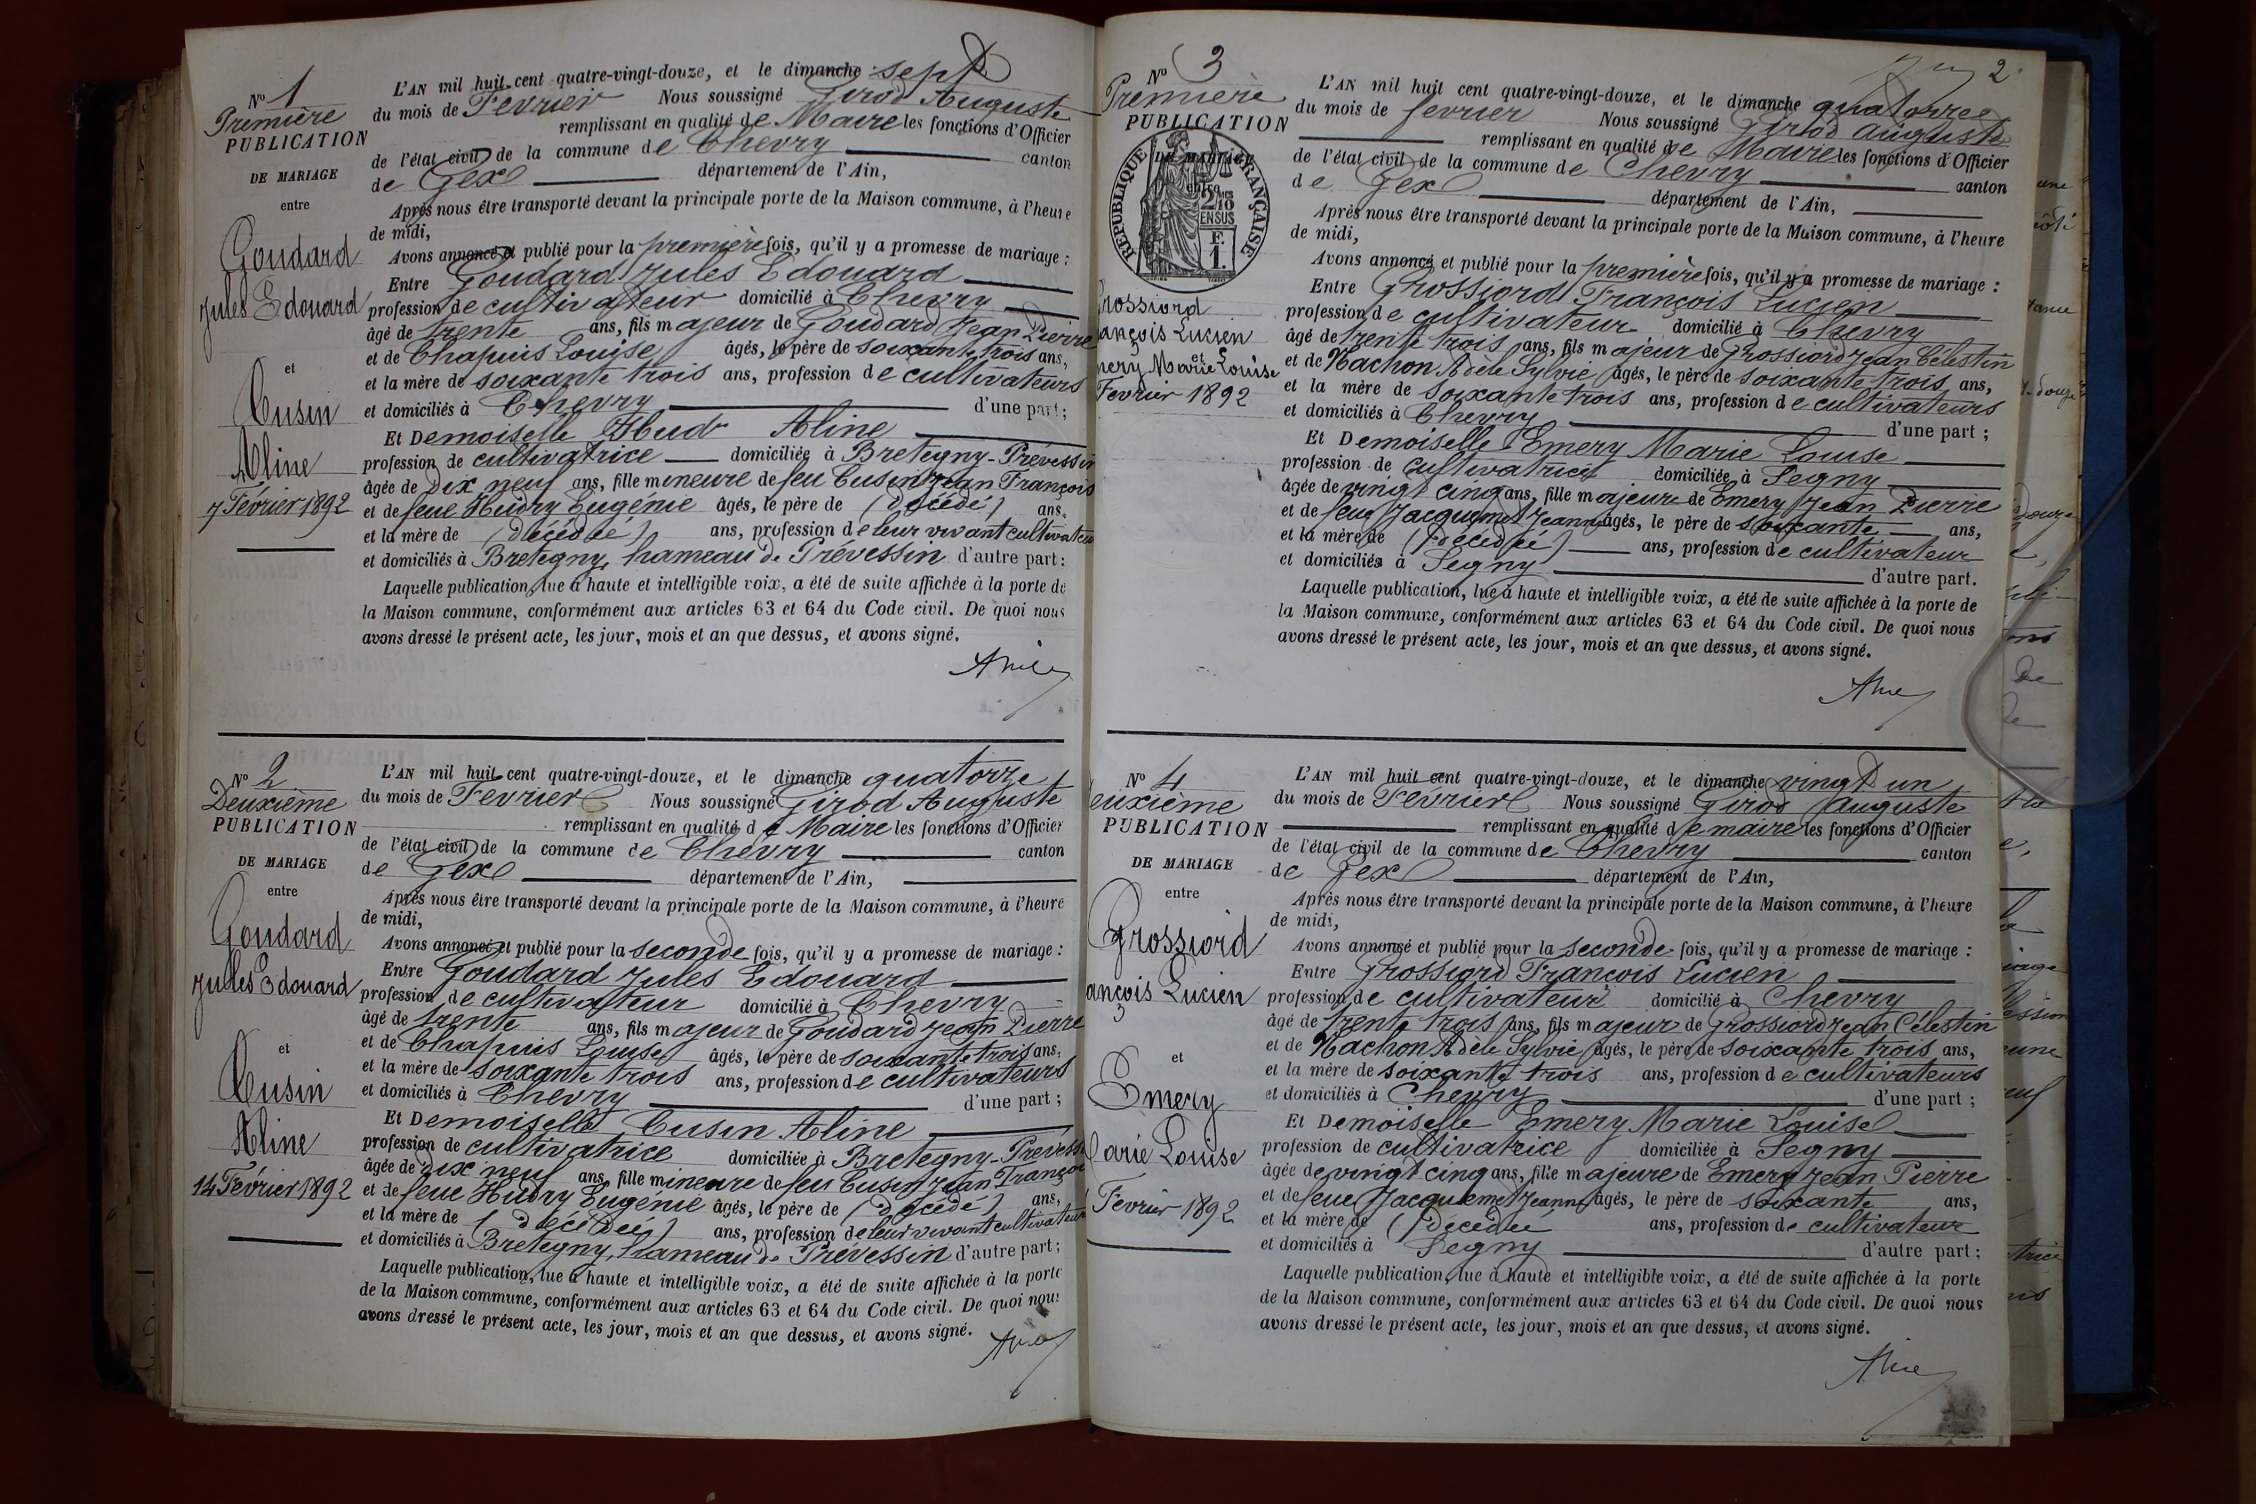 N° 1
Première
PUBLICATION
DE MARIAGE
entre
Goudard
Jules Edouard
et
Cusin
Aline
7 Février 1892
L'AN mil huit cent quatre-vingt-douze, et le dimanche sept
du mois de Fevrier Nous soussigné Girod Auguste
remplissant en qualité de Maire les fonctions d'Officier
de l'état civil de la commune de Chevry canton
de Gex département de l'Ain,
Après nous être transporté devant la principale porte de la Maison commune, à l'heure
de midi,
Avons annoncé et publié pour la première fois, qu'il y a promesse de mariage :
Entre Goudard Jules Edouard
profession de cultivateur domicilié à Chevry
âgé de trente ans, fils majeur de Goudard Jean Pierre
et de Chapuis Louise âgés, le père de soixante trois ans,
et la mère de soixante trois ans, profession de cultivateurs
et domiciliés à Chevry d'une part ;
Et Demoiselle Aline
profession de cultivatrice domiciliée à Bretegny-Prévessin
âgée de dix neuf ans, fille mineure de feu Cusin Jean François
et de feue Hudry Eugénie âgés, le père de (décédé) ans,
et la mère de (décédée) ans, profession de leur vivant cultivateu
et domiciliés à Bretegny, hameau de Prévessin d'autre part :
Laquelle publication, lue à haute et intelligible voix, a été de suite affichée à la porte de
la Maison commune, conformément aux articles 63 et 64 du Code civil. De quoi nous
avons dressé le présent acte, les jour, mois et an que dessus, et avons signé.
N° 2
Deuxième
PUBLICATION
DE MARIAGE
entre
Goudard
Jules Edouard
et
Cusin
Aline
14 Février 1892
L'AN mil huit cent quatre-vingt-douze, et le dimanche quatorze
du mois de Fevrier Nous soussigné Girod Auguste
remplissant en qualité de Maire les fonctions d'Officier
de l'état civil de la commune de Chevry canton
de Gex département de l'Ain,
Après nous être transporté devant la principale porte de la Maison commune, à l'heure
de midi,
Avons annoncé et publié pour la seconde fois, qu'il y a promesse de mariage :
Entre Goudard Jules Edouard
profession de cultivateur domicilié à Chevry
âgé de trente ans, fils majeur de Goudard Jean Pierre
et de Chapuis Louise âgés, le père de soixante trois ans,
et la mère de soixante trois ans, profession de cultivateurs
et domiciliés à Chevry d'une part ;
Et Demoiselle Cusin Aline
profession de cultivatrice domiciliée à Bretegny-Prevess
âgée de dix neuf ans, fille mineure de feu Cusin Jean Françoi
et de feue Hudry Eugénie âgés, le père de (décédé) ans,
et la mère de (décédée) ans, profession de leur vivant cultivateur
et domiciliés à Bretegny, hameau de Prévessin d'autre part ;
Laquelle publication, lue à haute et intelligible voix, a été de suite affichée à la porte
de la Maison commune, conformément aux articles 63 et 64 du Code civil. De quoi nous
avons dressé le présent acte, les jour, mois et an que dessus, et avons signé.
2
N° 3
Première
PUBLICATION
DE MARIAGE
entre
RÉPUBLIQUE FRANÇAISE
2/10 ENSUS
F. 1.
rossiord
ançois Lucien
et
mery Marie Louise
Fevrier 1892
L'AN mil huit cent quatre-vingt-douze, et le dimanche quatorze
du mois de fevrier Nous soussigné Girod Auguste
remplissant en qualité de Maire les fonctions d'Officier
de l'état civil de la commune de Chevry canton
de Gex département de l'Ain,
Après nous être transporté devant la principale porte de la Maison commune, à l'heure
de midi,
Avons annoncé et publié pour la première fois, qu'il y a promesse de mariage :
Entre Grossiord François Lucien
profession de cultivateur domicilié à Chevry
âgé de trente trois ans, fils majeur de Grossiord Jean Célestin
et de Nachon Adèle Sylvie âgés, le père de soixante trois ans,
et la mère de soixante trois ans, profession de cultivateurs
et domiciliés à Chevry d'une part ;
Et Demoiselle Emery Marie Louise
profession de cultivatrice domiciliée à Segny
âgée de vingt cinq ans, fille majeure de Emery Jean Pierre
et de feue Jacquemet Jeanne âgés, le père de soixante ans,
et la mère de (décédée) ans, profession de cultivateur
et domiciliés à Segny d'autre part.
Laquelle publication, lue à haute et intelligible voix, a été de suite affichée à la porte de
la Maison commune, conformément aux articles 63 et 64 du Code civil. De quoi nous
avons dressé le présent acte, les jour, mois et an que dessus, et avons signé.
N° 4
euxième
PUBLICATION
DE MARIAGE
entre
Grossiord
ançois Lucien
et
Emery
Marie Louise
Fevrier 1892
L'AN mil huit cent quatre-vingt-douze, et le dimanche vingt un
du mois de Février Nous soussigné Girod Auguste
remplissant en qualité de maire les fonctions d'Officier
de l'état civil de la commune de Chevry canton
de Gex département de l'Ain,
Après nous être transporté devant la principale porte de la Maison commune, à l'heure
de midi,
Avons annoncé et publié pour la seconde fois, qu'il y a promesse de mariage :
Entre Grossiord François Lucien
profession de cultivateur domicilié à Chevry
âgé de trente trois ans, fils majeur de Grossiord Jean Célestin
et de Nachon Adèle Sylvie âgés, le père de soixante trois ans,
et la mère de soixante trois ans, profession de cultivateurs
et domiciliés à Chevry d'une part ;
Et Demoiselle Emery Marie Louise
profession de cultivatrice domiciliée à Segny
âgée de vingt cinq ans, fille majeure de Emery Jean Pierre
et de feue Jacquemet Jeanne âgés, le père de soixante ans,
et la mère de (décédée ans, profession de cultivateur
et domiciliés à Segny d'autre part ;
Laquelle publication, lue à haute et intelligible voix, a été de suite affichée à la porte
de la Maison commune, conformément aux articles 63 et 64 du Code civil. De quoi nous
avons dressé le présent acte, les jour, mois et an que dessus, et avons signé.